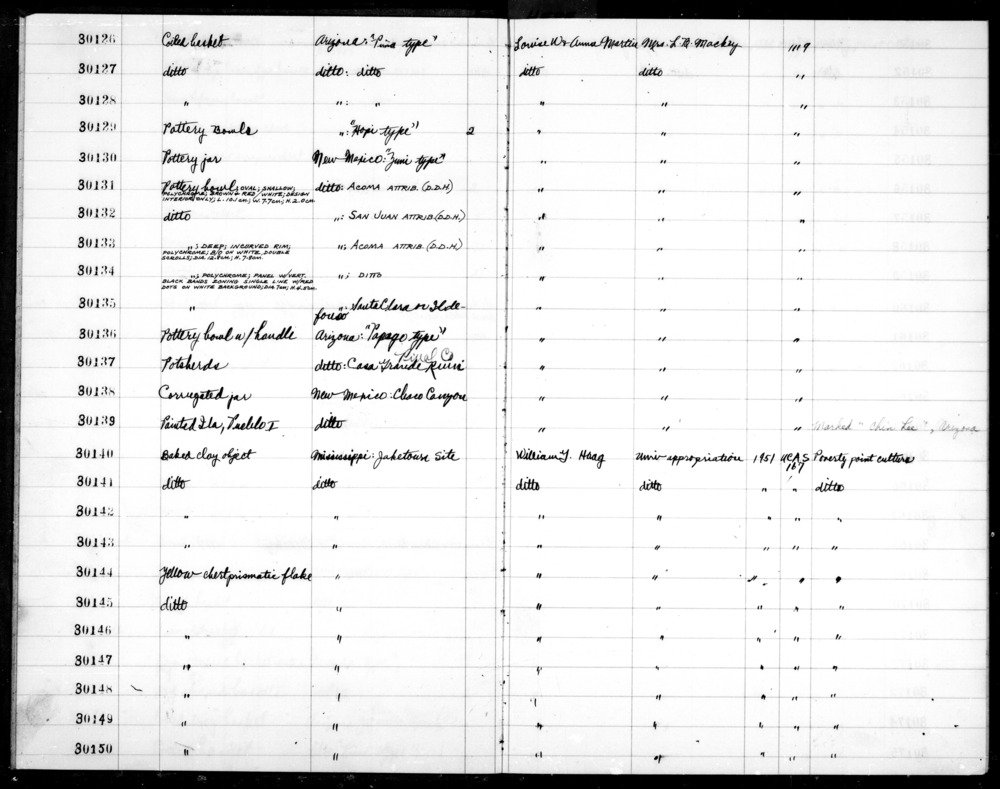 30126 Coiled basket Arizona: "Pima type" Louise W. & Anna Martin Mrs. L. M. Mackey 1119
30127 ditto ditto: ditto ditto ditto "
30128 " ": " " " "
30129 Pottery Bowls ": "Hopi type" 2 " " "
30130 Pottery jar New Mexico: "Zuni type" " " "
30131 Pottery bowl; OVAL; SHALLOW; ditto: ACOMA ATTRIB. (D.D.H) " " "
POLYCHROME; BROWN & RED/WHITE; DESIGN
INTERIOR ONLY; L. 10.1 cm; W. 7.7cm; H. 2.0cm
30132 ditto ": SAN JUAN ATTRIB. (D.D.H.) " " "
30133 "; DEEP; INCURVED RIM; "; ACOMA ATTRIB. (D.D.H.) " " "
POLYCHROME; B/O ON WHITE DOUBLE
SCROLLS; DIA. 12.8cm; H. 7.8cm.
30134 "; POLYCHROME; PANEL W/VERT. "; DITTO " " "
BLACK BANDS ZONING SINGLE LINE W/RED
DOTS ON WHITE BACKGROUND; DIA. 7cm; H. 4.5cm
30135 " ": Santa Clara or Ilde- " " "
fonso
30136 Pottery bowl w/handle Arizona: "Papago type" " " "
Pinal Co
30137 Potsherds ditto: Casa Grande Ruins " " "
30138 Corrugated jar New Mexico: Chaco Canyon " " "
30139 Painted Ila, Pueblo I ditto " " " Marked "Chin Lee", Arizona
30140 Baked clay object Mississippi: Jaketown Site William G. Haag Univ appropriation 1951 UCAS Poverty point culture
167
30141 ditto ditto ditto ditto " " ditto
30142 " " " " " " "
30143 " " " " " " "
30144 Yellow chert prismatic flake " " " " " "
30145 ditto " " " " " "
30146 " " " " " " "
30147 " " " " " " "
30148 " " " " " " "
30149 " " " " " " "
30150 " " " " " " "